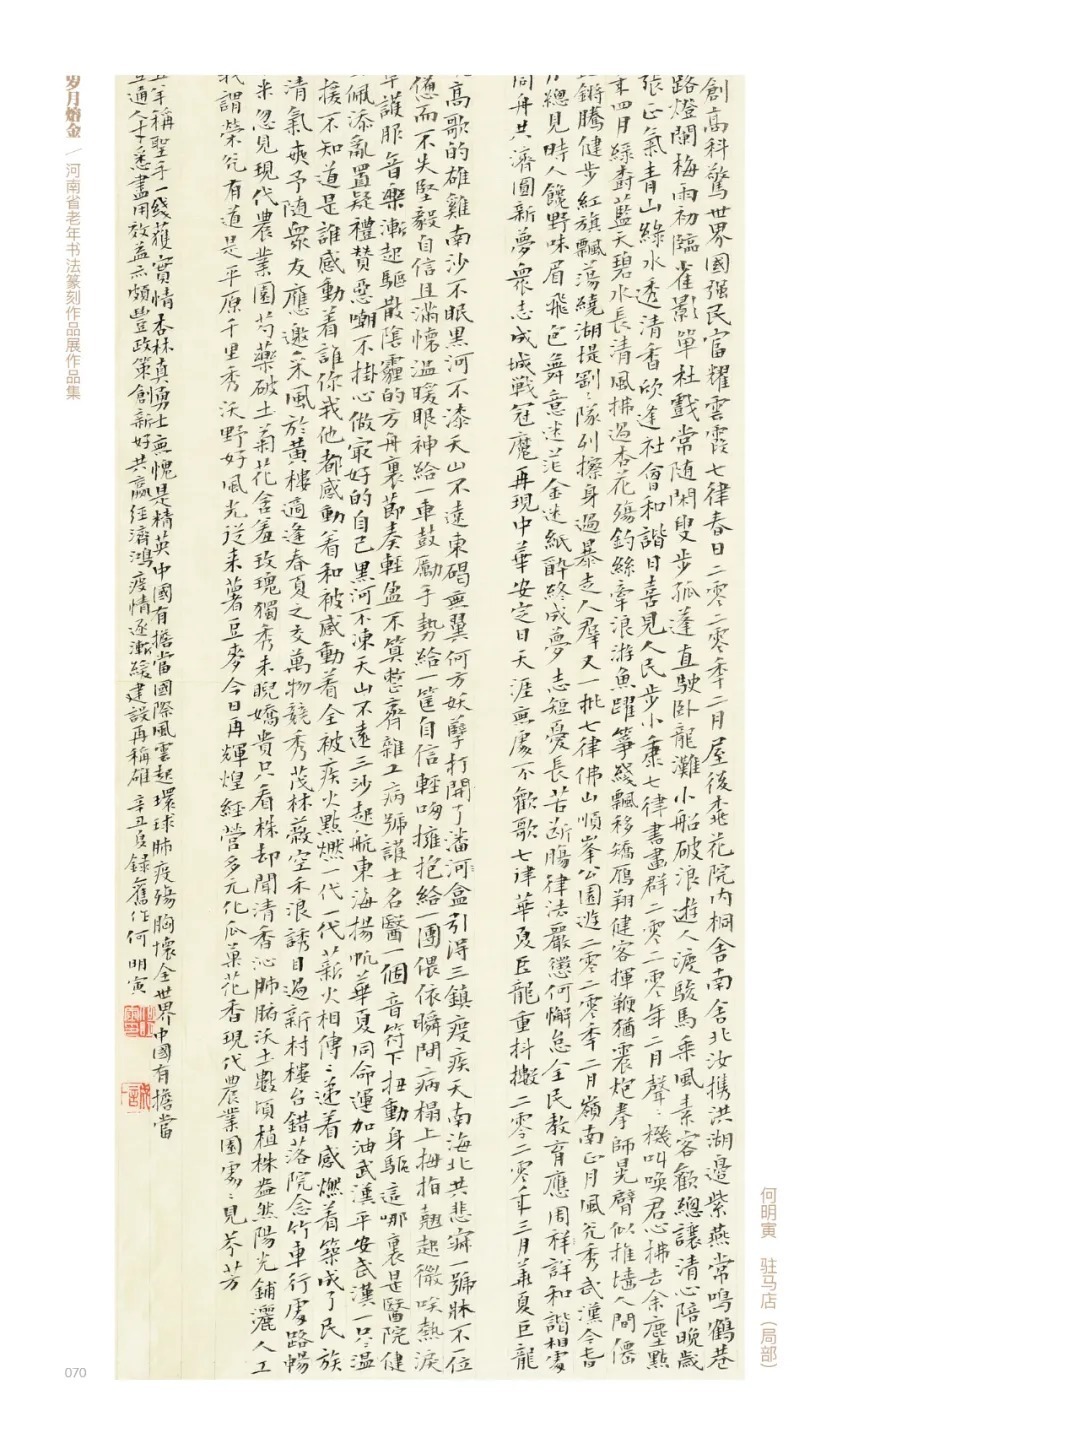 岁月熔金／河南省老年书法篆刻作品展作品集
創高科驚世界國强民富耀雲霞七律春日二零二零年二月屋後桃花院内桐舍南舍北汝携洪湖邊紫燕常鳴鶴巷
路燈闌梅雨初臨雀影單杜戲常随閑叟步孤蓬直駛卧龍灘小船破浪遊人渡駿馬乘風素客歡總讓清心陪晚歲
張正氣青山綠水透清香欣逢社會和諧日喜見人民步小康七律書畫群二零二零年二月聲〻機叫唤君心拂去余塵點
末四月綠樹藍天碧水長清風拂過杏花殤釣絲牽浪游魚躍箏綫飄移矯雁翔健客揮鞭猶震炮拳師晃臂似推墙人間僊
鏘騰健步紅旗飄蕩繞湖堤劉〻隊列擦身過暴走人群又一批七律佛山順峯公園遊二零二零年二月嶺南正月風光秀武漢今昔
總見時人饞野味眉飛色舞意迷茫金迷紙醉終成夢志短憂長苦斷腸律法嚴懲何懈怠全民教育應周祥詳和諧相處
同舟共濟圆新夢衆志成城戰冠魔再現中華安定日天涯無處不歡歌七律華夏巨龍重抖擻二零二零年三月華夏巨龍
高歌的雄雞南沙不眠黑河不漆天山不遠東碣無翼何方妖孽打開了潘河盒引得三鎮疫疾天南海北共悲痾一號牀不一位
憊而不失堅毅自信且滿懷溫暖眼神給一車鼓勵手勢給一筐自信輕吻擁抱給一團偎依瞬間病榻上拇指翹起微唉熱淚
護服音樂漸起驅散陰霾的方舟裏節奏輕盈不算整齊雜工病號護士名醫一個音符下扭動身軀這哪裏是醫院健
佩添亂置疑禮贊惡嘲不掛心做最好的自己黑河不凍天山不遠三沙起航東海揚帆華夏同命運加油武漢平安武漢一只〻温
援不知道是誰感動着誰你我他都感動着和被感動着全被疾火點燃一代一代薪火相傳〻遞着感燃着築成了民族
清氣爽予随衆友應邀采風於黄樓適逢春夏之交萬物競秀茂林蔽空禾浪誘目過新村樓台錯落院念竹車行處路暢
米忽見現代農業園芍藥破土菊花含羞玫瑰獨秀未睨嬌貴只看株却聞清香沁肺腑沃土數頃植株盎然陽光鋪灑人工
我謂榮光有道是平原千里秀沃野好風光從来薯豆麥今日再輝煌經营多元化瓜菓花香現代農業園處〻見芥芳
年稱聖手一綫獲實情杏林真勇士無愧是精英中國有擔當國際風雲起環球肺疫殤胸懷全世界中國有擔當
互通人才悉盡用效益亦頗豐政策創新好共贏經濟鴻疫情逐漸緩建設再稱雄 辛丑夏録舊作何明寅
何明寅 驻马店（局部）
070